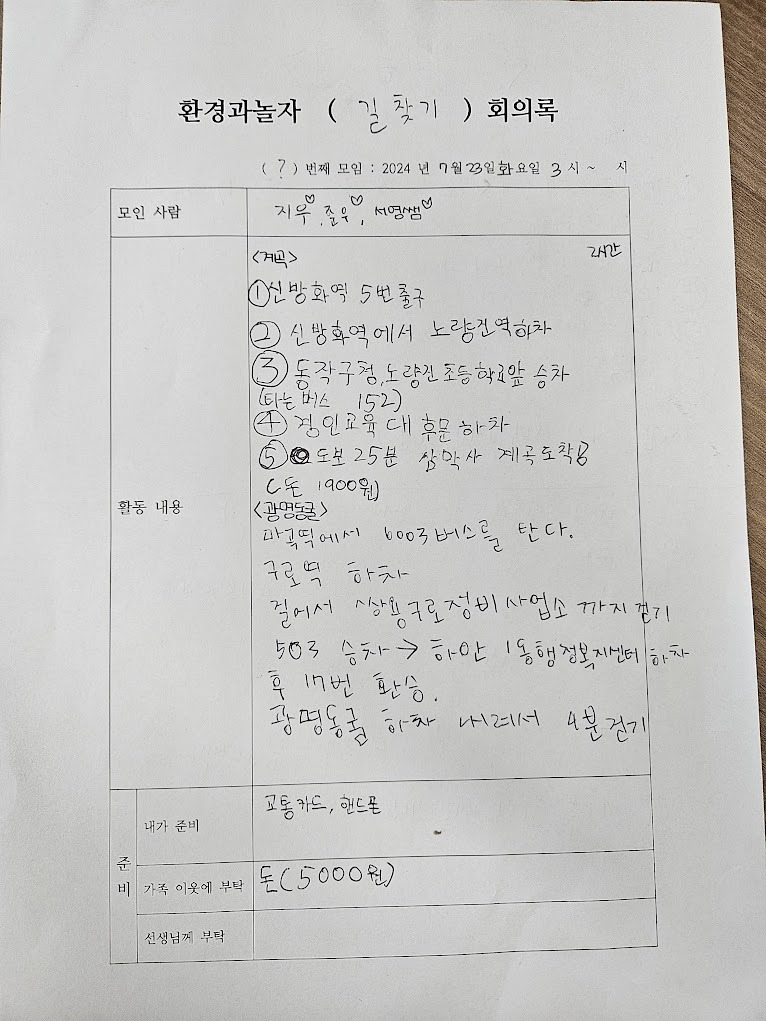 환경과놀자 ( 길찾기 ) 회의록
( ? ) 번째 모임 : 2024 년 7월 23일 화요일 3 시 ~ 시
모인 사람
지우♡, 준우♡, 서영쌤♡
활동 내용
<계곡> 2시간
① 신방화역 5번출구
② 신방화역에서 노량진역하차
③ 동작구청,노량진초등학교앞 승차
(타는 버스 152)
④ 경인교육대 후문 하차
⑤ 도보 25분 삼막사 계곡도착
(돈 1900원)
<광명동굴>
마곡역에서 6003버스를 탄다.
구로역 하차
길에서 쌍용구로정비사업소 까지 걷기
503 승차 → 하안 1동행정복지센터 하차
후 17번 환승.
광명동굴 하차 내려서 4분걷기
준비
내가 준비
교통카드, 핸드폰
가족 이웃에 부탁
돈(5000원)
선생님께 부탁